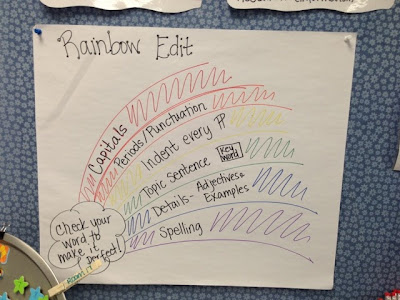 Rainbow Edit
Capitals
Periods/Punctuation
Indent every PP
Topic Sentence Key Word
Details - Adjectives &
Examples
Spelling
Check your
word to
make it
perfect!